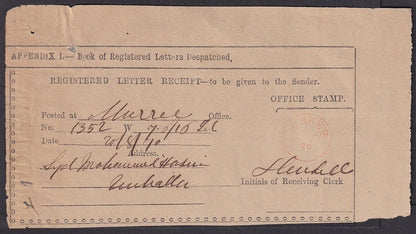 APPENDIX I.— Book of Registered Letters Despatched.
REGISTERED LETTER RECEIPT—to be given to the Sender.
OFFICE STAMP.
Posted at Murree Office.
No. 1352 W
Date
Address.
Syd Mohammed
Umballa
Initials of Receiving Clerk